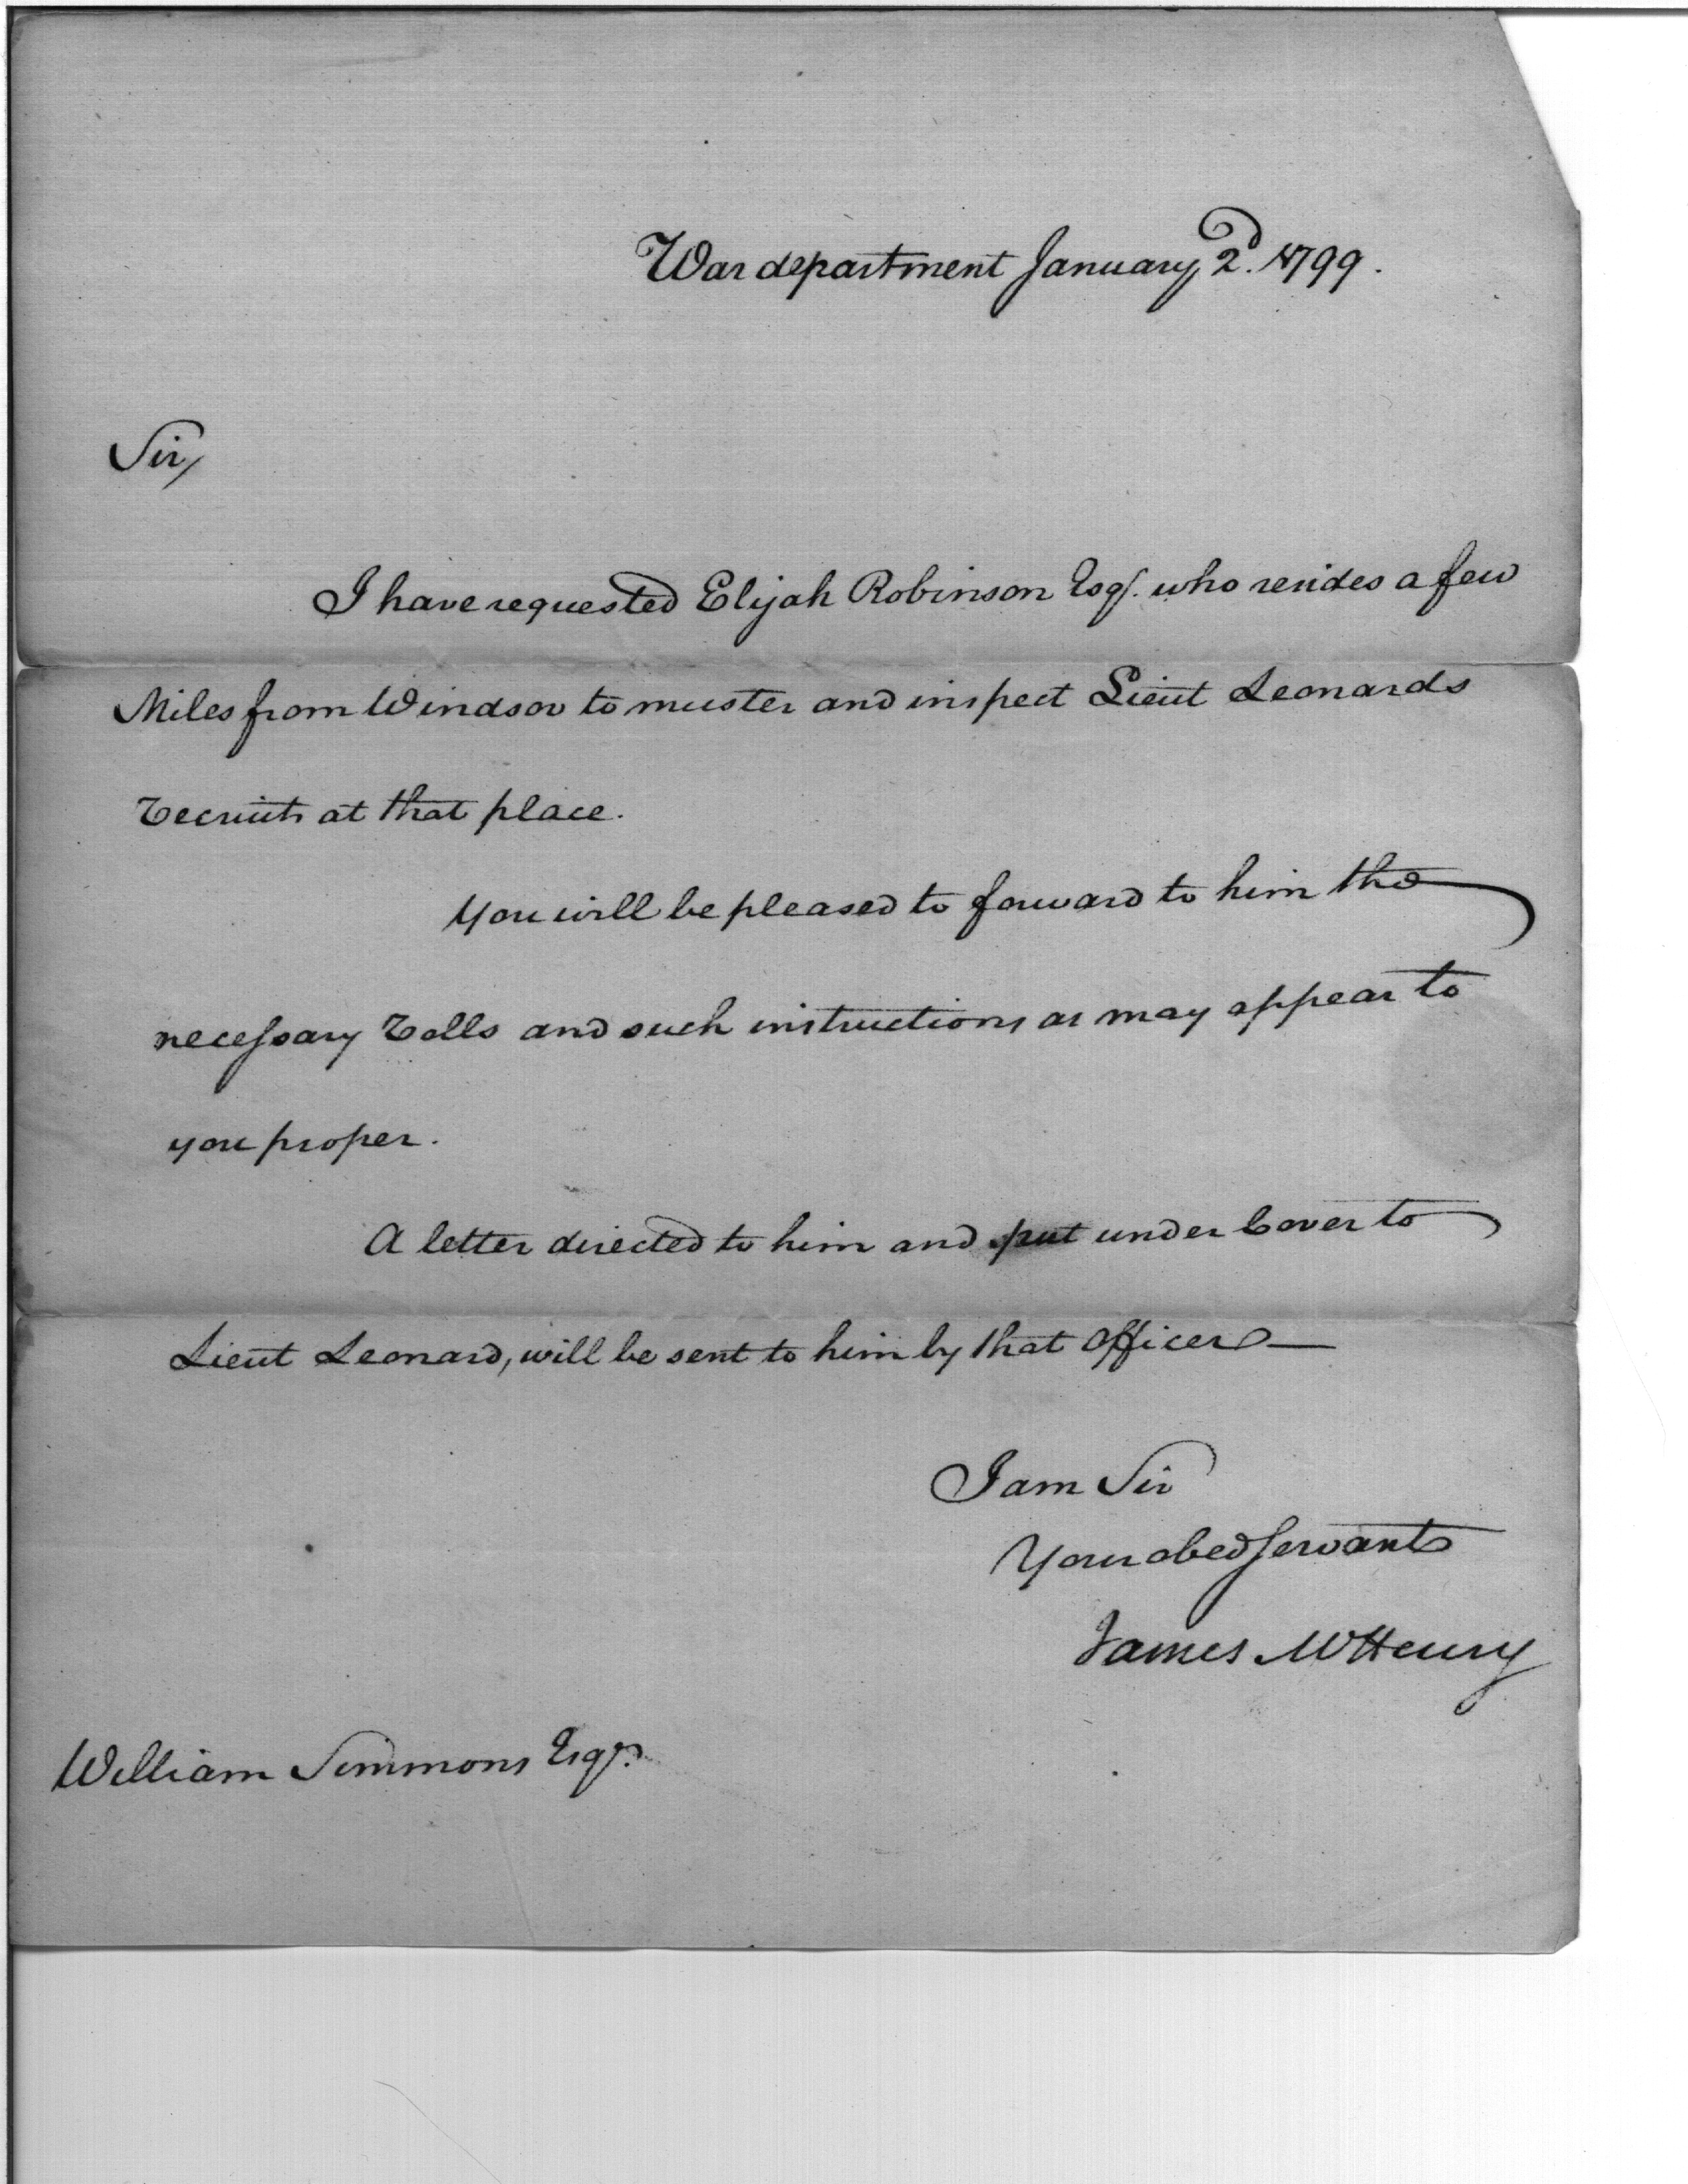 War department January 2d. 1799.
Sir,
I have requested Elijah Robinson Esqr. who resides a few
Miles from Windsor to muster and inspect Lieut Leonards
recruits at that place.
You will be pleased to forward to him the
necessary rolls and such instructions as may appear to
you proper.
A letter directed to him and put under Cover to
Lieut Leonard, will be sent to him by that Officer—
I am Sir
Your obed servant
James McHenry
William Simmons Esqr.